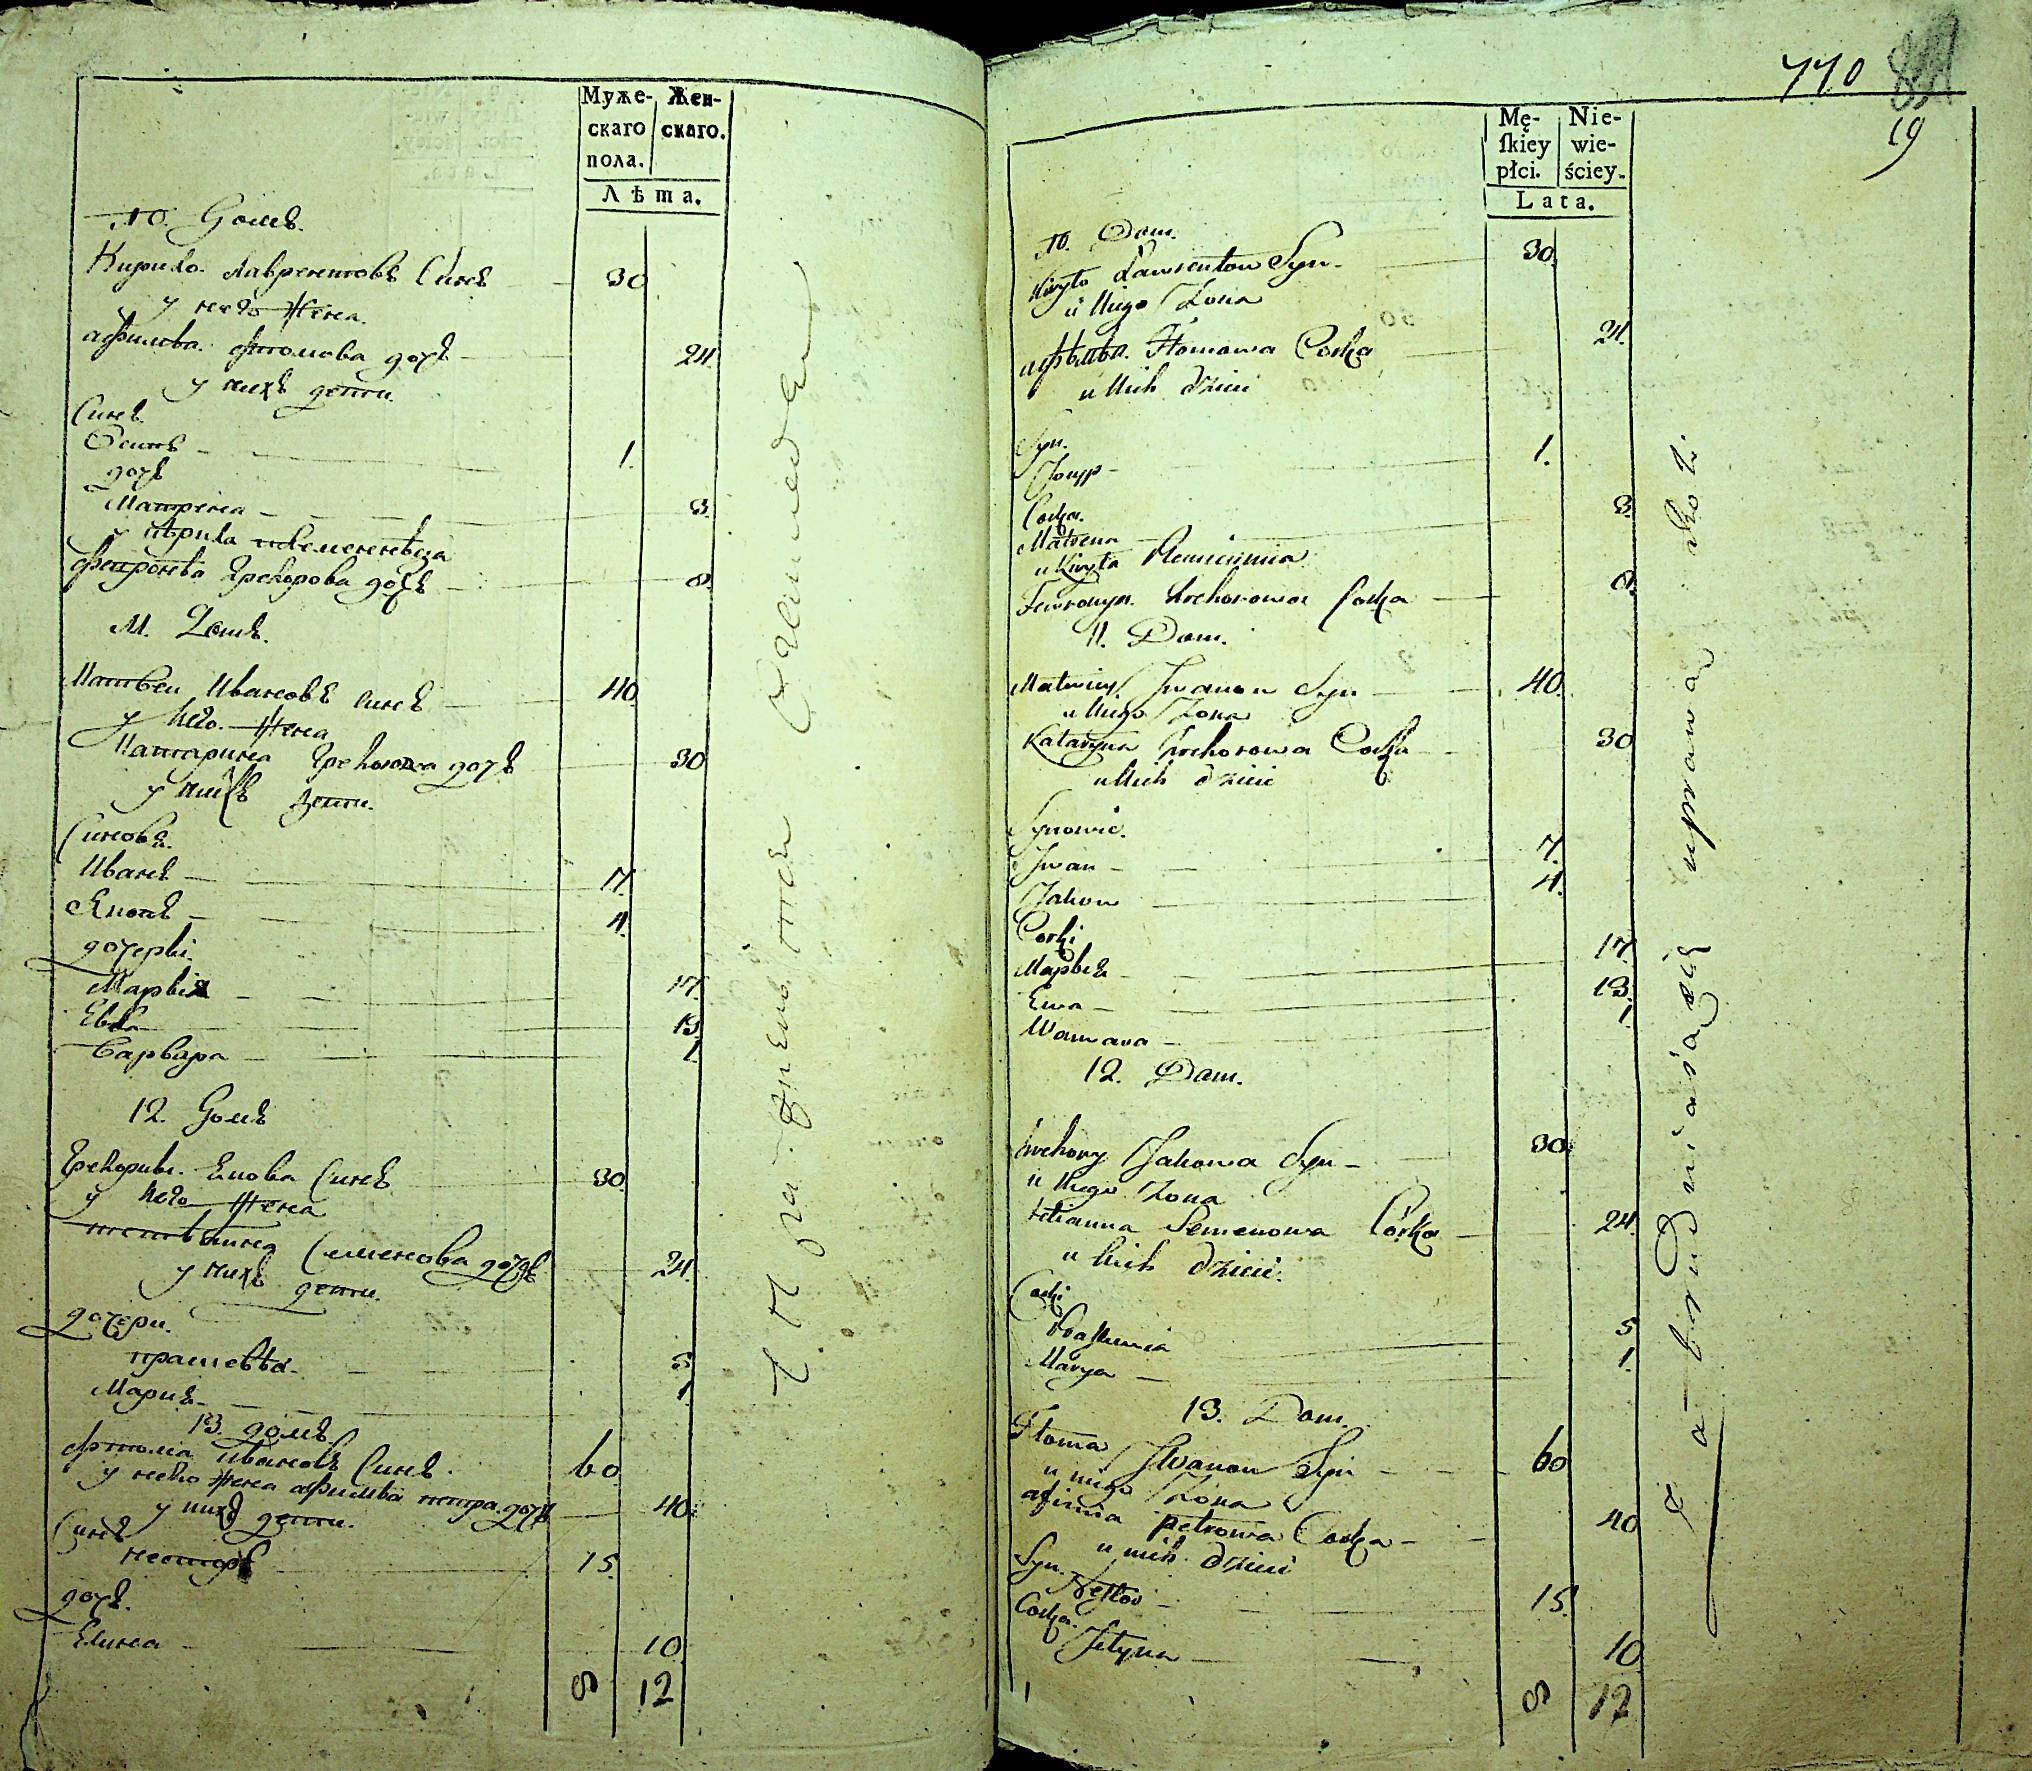 Муже- Жен-
скаго скаго.
пола.
Лѣта.
10. Домъ.
Кирило Лаврентовъ Синъ 30
у него Жена
афимва Фтомова дочъ 24
у нихъ дети
Синъ
Осипъ 1.
дочъ
Матрена 3.
у Кѣрила
Февронева Грекорова дочъ 8.
11. Домъ.
Матвеи Ивановъ Синъ 40
у него Жена
Катарина Грекорова дочъ 30
у нихъ дети.
Синова.
Иванъ 17.
Яковъ 4.
дочерві.
Марвія 17.
Евва 13
Варвара 1.
12. Домъ
Грекориі Якова Синъ 30.
у него Жена
Семенова дочъ 24.
у нихъ дети.
дочери.
прасевва 5
Мария 1
13. домъ
Фтома Ивановъ Синъ. 60
у него Жена афимва петра дочъ 40
у нихъ дети.
Синъ
Нестор 15.
дочъ.
Елина 10
8 12
770
19
Mę- Nie-
ſkiey wie-
płci. ściey.
Lata.
10. Dom.
Kiryło Lawrentow Syn 30.
u Niego Żona
Ftomowa Corka 24.
u Nich dzieci
Syn.
Josyp 1.
Corka.
Matrena 3.
u Kiryła
Fewronya Hrehorowa Corka 8.
11. Dom.
Matwiey Jwanow Syn 40.
u Niego Żona
Kataryna Hrehorowa Corka 30
u Nich dzieci
Synowie.
Jwan 7.
Jakow 4.
Corki
Марвія 17.
Ewa 13.
Warwara 1.
12. Dom.
Hrehory Jakowa Syn 30
u Niego Żona
Semenowa Córka 24.
u Nich dzieci.
Corki
5
Marya 1.
13. Dom.
Ftoma Jwanow Syn 60
u niego Żona
afimia petrowa Corka 40
u nich dzieci
Syn.
Nestor 15.
Corka.
Jelyna 10
8 12